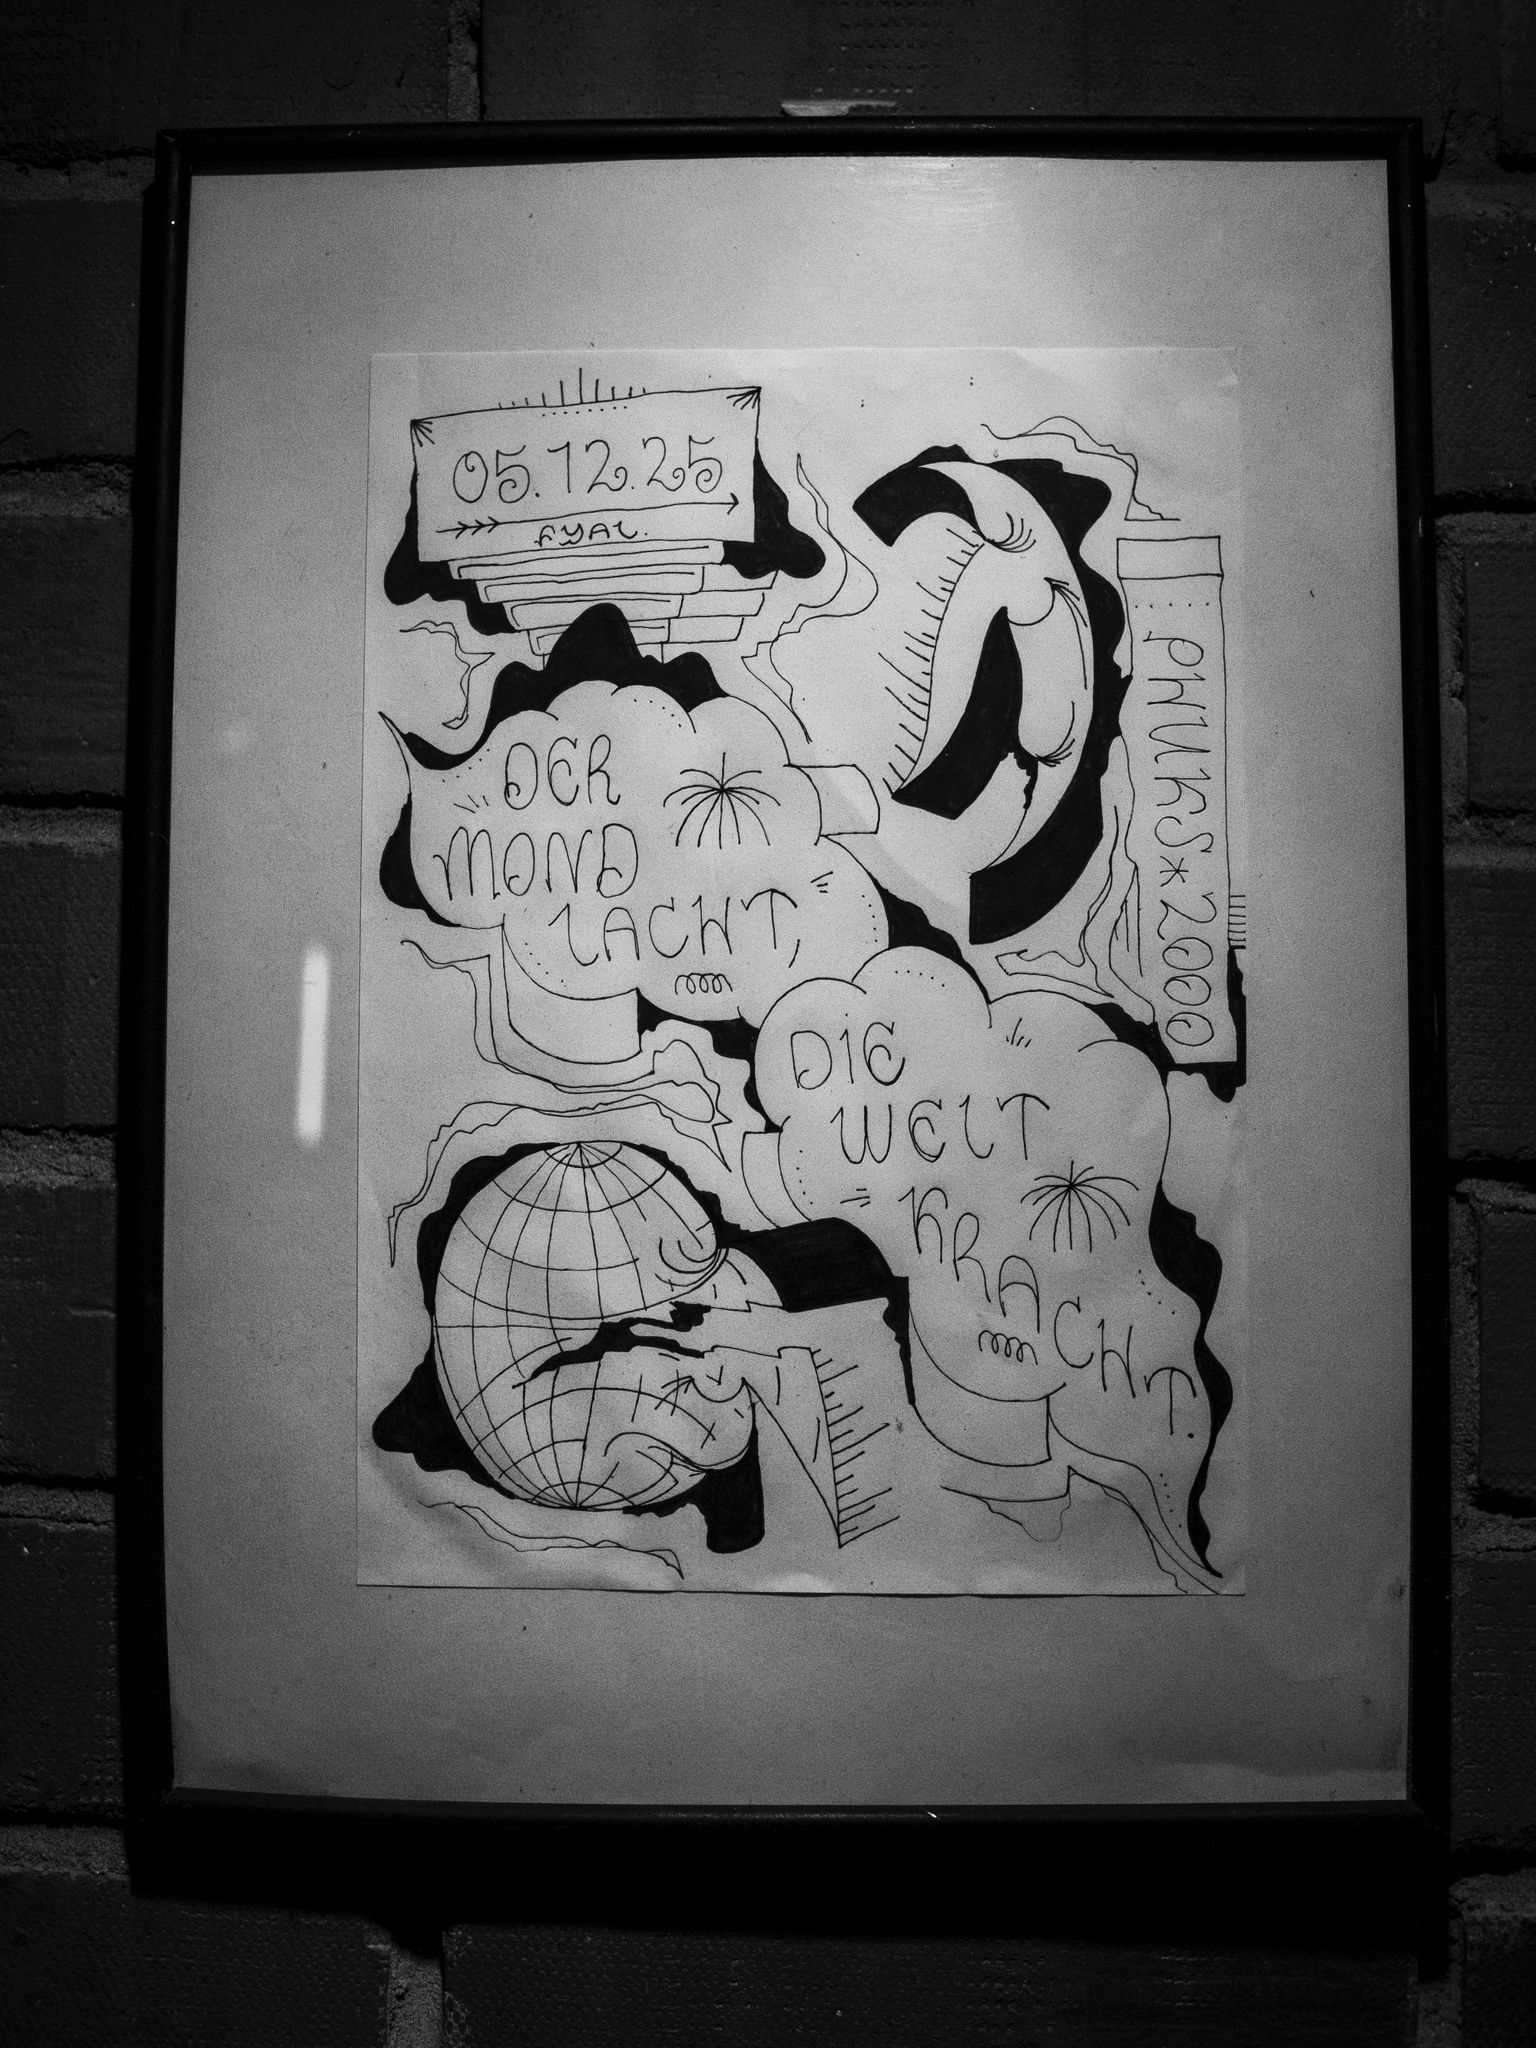 05.12.25
FYAL.
PHUKS*2000
DER
MOND
LACHT,
DIE
WELT
KRACHT.